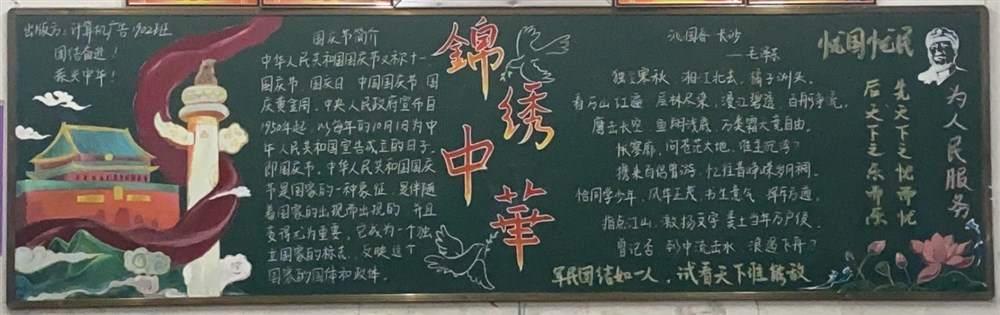 出版方：计算机广告1902班
团结奋进！
振兴中华！
国庆节简介
中华人民共和国国庆节又称十一
国庆节 国庆日 中国国庆节 国
庆黄金周。中央人民政府宣布自
1950年起，以每年的10月1日为中
华人民共和国宣告成立的日子。
即国庆节。中华人民共和国国庆
节是国家的一种象征，是伴随
着国家的出现而出现的 并且
变得尤为重要。它成为一个独
立国家的标志，反映这个
国家的国体和政体。
錦绣中華
沁园春 长沙
—毛泽东
独立寒秋 湘江北去，橘子洲头。
看万山红遍 层林尽染，漫江碧透 百舸争流。
鹰击长空 鱼翔浅底 万类霜天竞自由。
怅寥廓，问苍茫大地，谁主沉浮？
携来百侣曾游 忆往昔峥嵘岁月稠。
恰同学少年，风华正茂 书生意气 挥斥方遒
指点江山，激扬文字 粪土当年万户侯
曾记否 到中流击水 浪遏飞舟？
军民团结如一人，试看天下谁能敌
忧国忧民
先天下之忧而忧
后天下之乐而乐
为人民服务